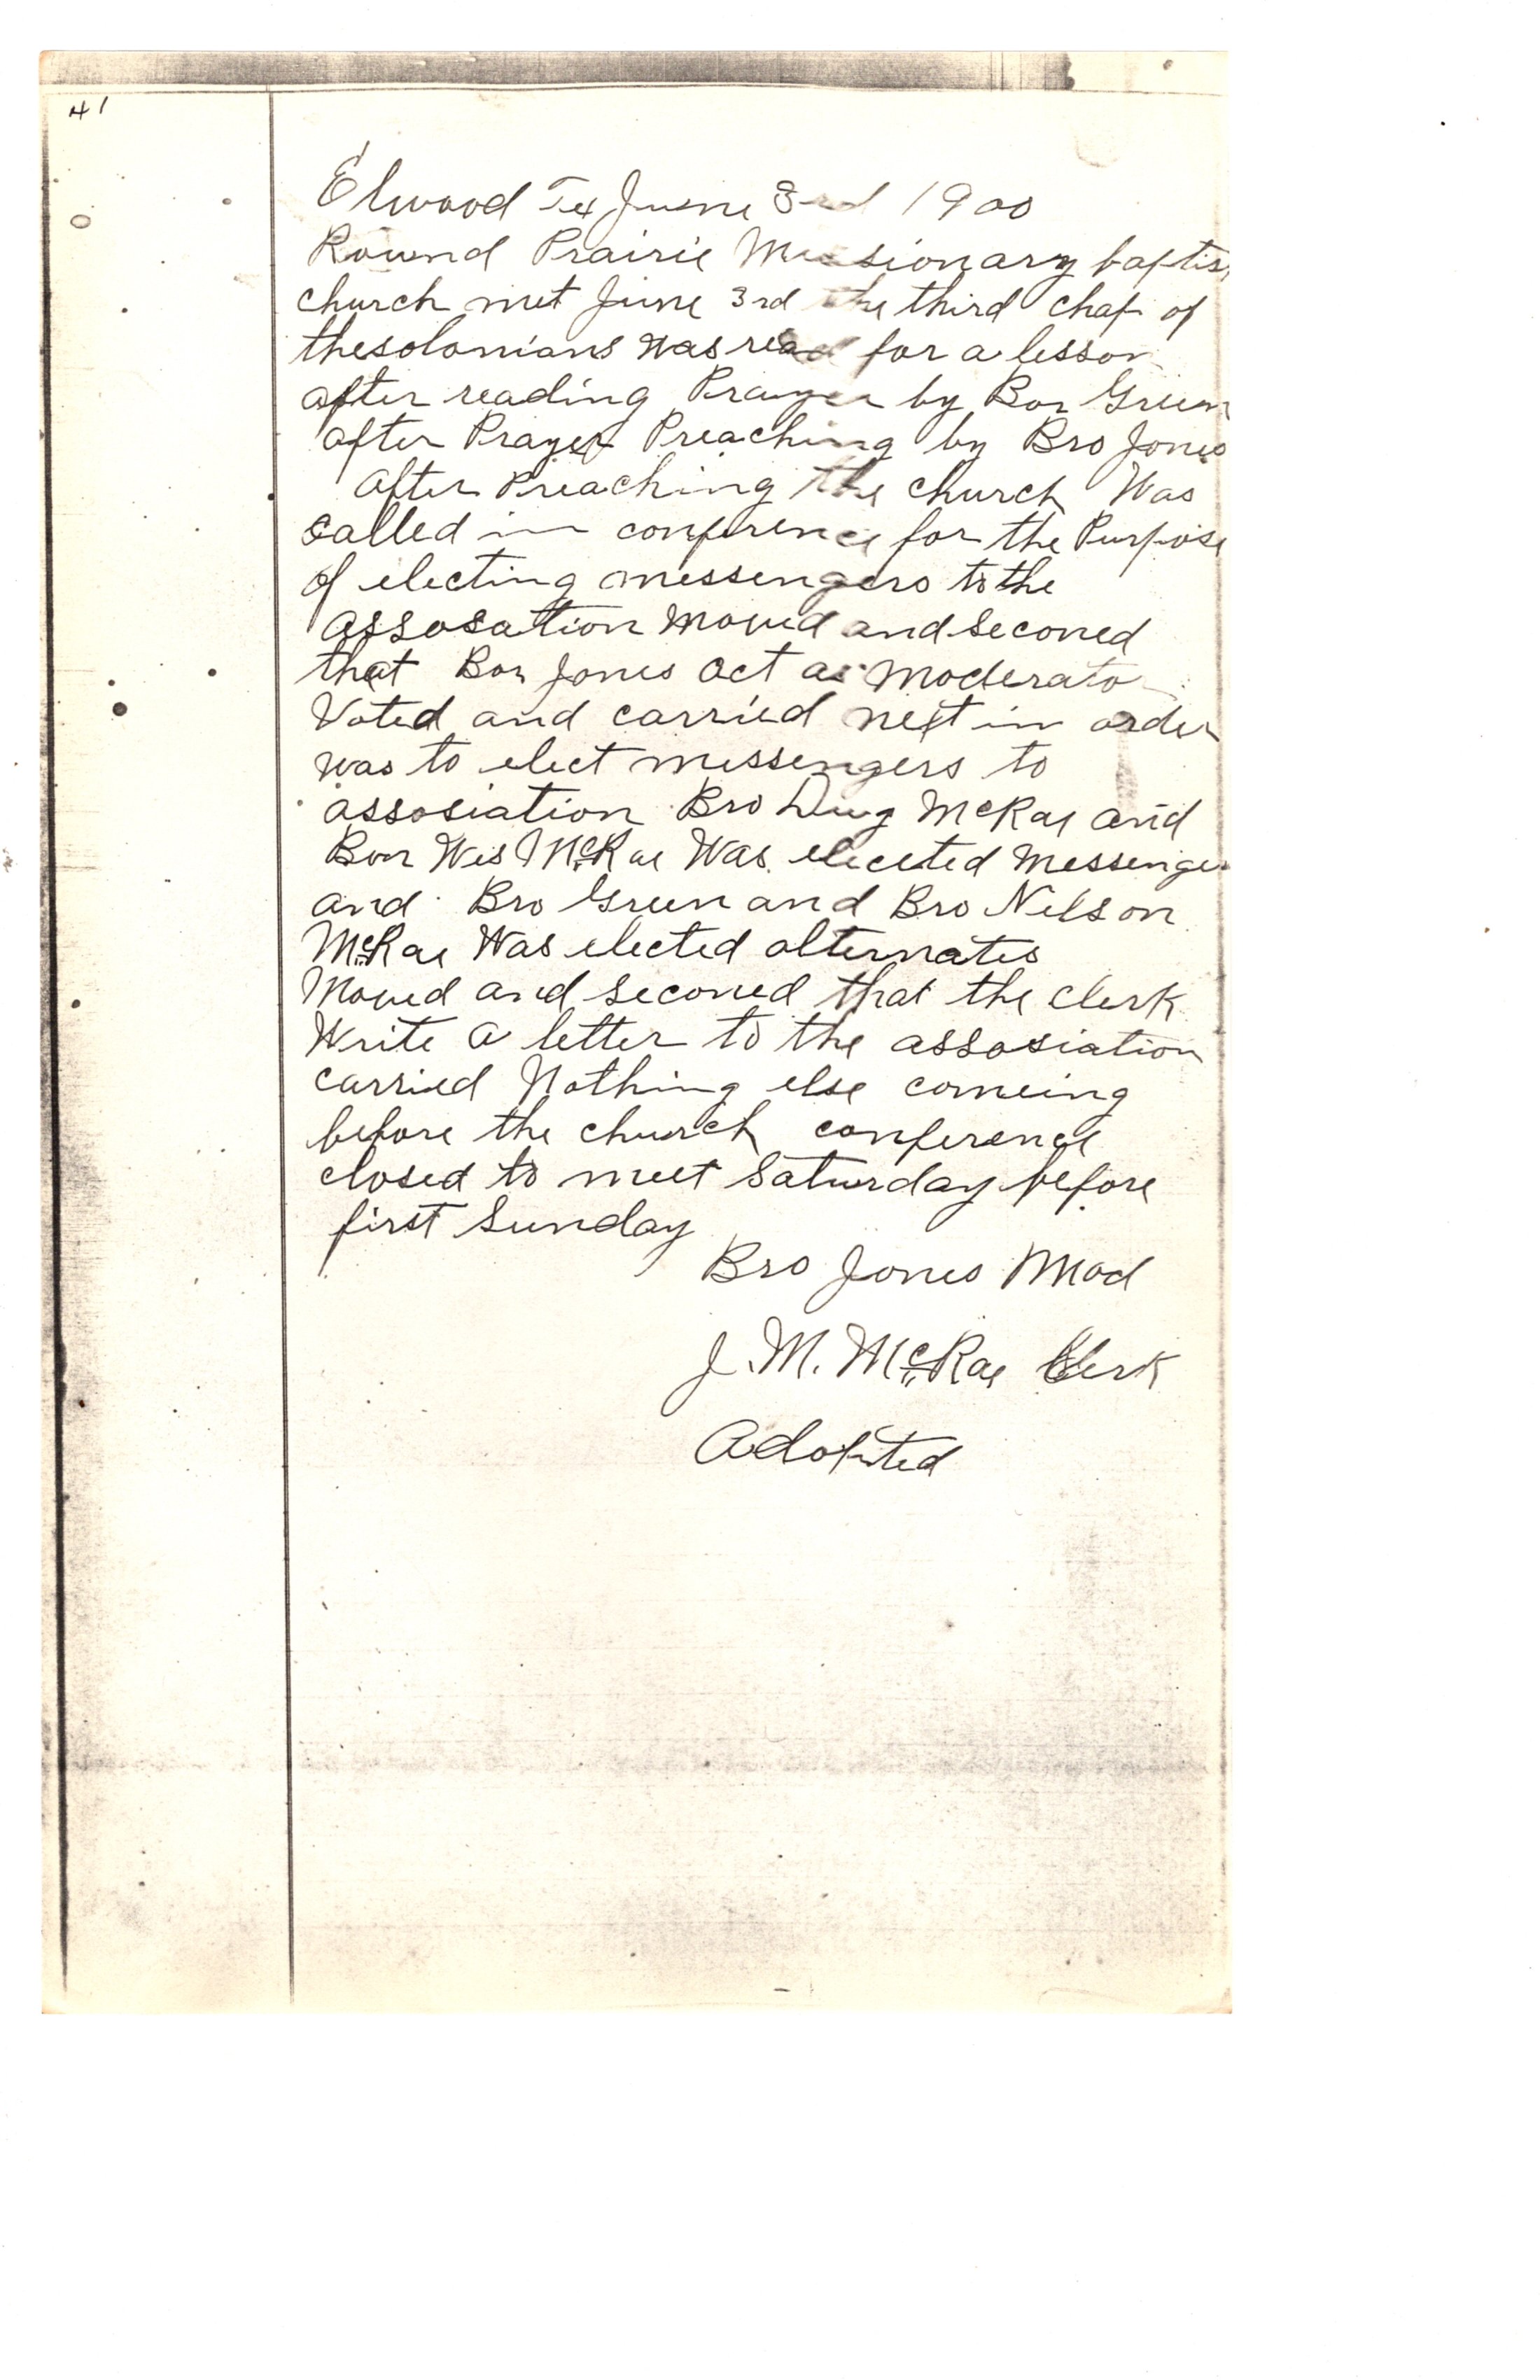 41
Elwood Tex June 3rd 1900
Round Prairie Missionary baptis
church met June 3rd the third chap of
thesolonians was read for a lesson
after reading Prayer by Bor Green
after Prayer Preaching by Bro Jones
after Preaching the church Was
called in conference for the Purpose
of electing messengers to the
assosation moved and seconed
that Bor Jones act as moderato
Voted and carried next in order
was to elect messengers to
assosiation Bro McRae and
Bor Wes McRae Was elected messenger
and Bro Green and Bro Nelson
McRae Was elected alternates
Moved and seconed that the clerk
Write a letter to the assosiation
carried Nothing else comeing
before the church conference
closed to meet Saturday before
first Sunday
Bro Jones Mod
J. M. McRae Clerk
Adopted